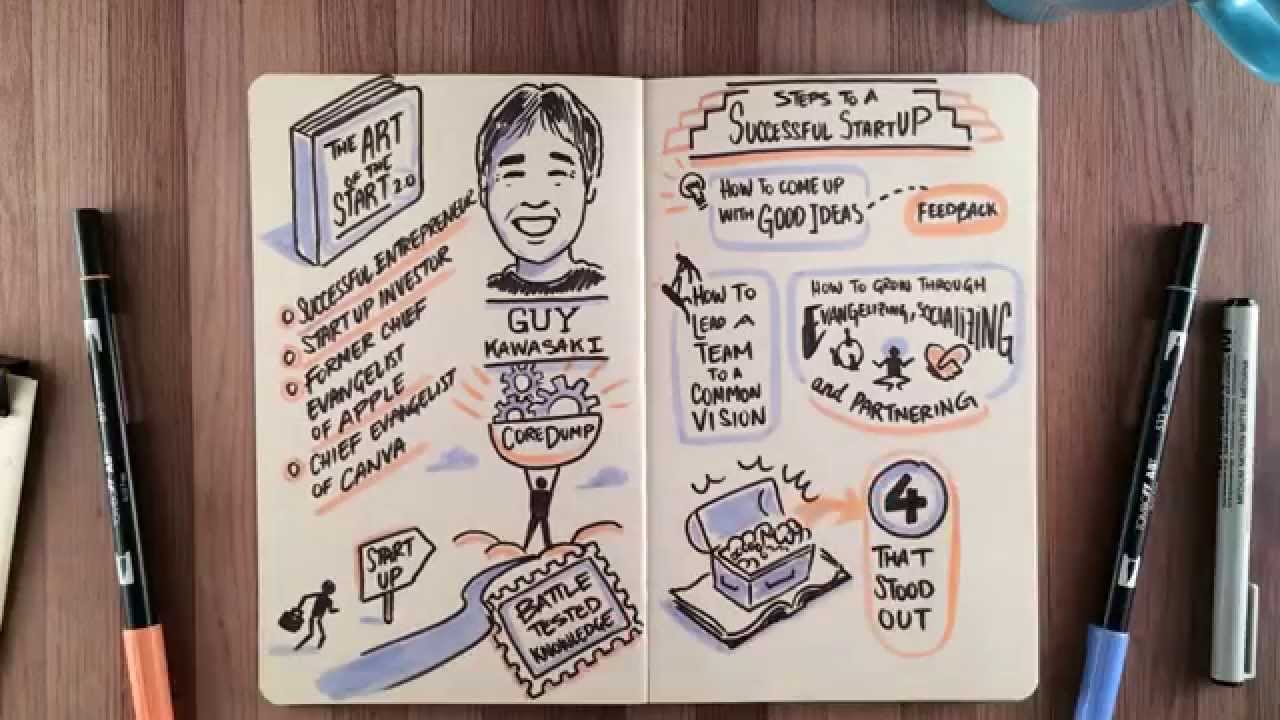 THE ART
OF THE
START 2.0
SUCCESSFUL ENTREPRENEUR
START UP INVESTOR
FORMER CHIEF
EVANGELIST
OF APPLE
CHIEF EVANGELIST
OF CANVA
GUY
KAWASAKI
CORE DUMP
START
UP
BATTLE
TESTED
KNOWLEDGE
STEPS TO A
SUCCESSFUL STARTUP
HOW TO COME UP
WITH GOOD IDEAS
FEEDBACK
HOW TO
LEAD A
TEAM
TO A
COMMON
VISION
HOW TO GROW THROUGH
EVANGELIZING, SOCIALIZING
and PARTNERING
4
THAT
STOOD
OUT